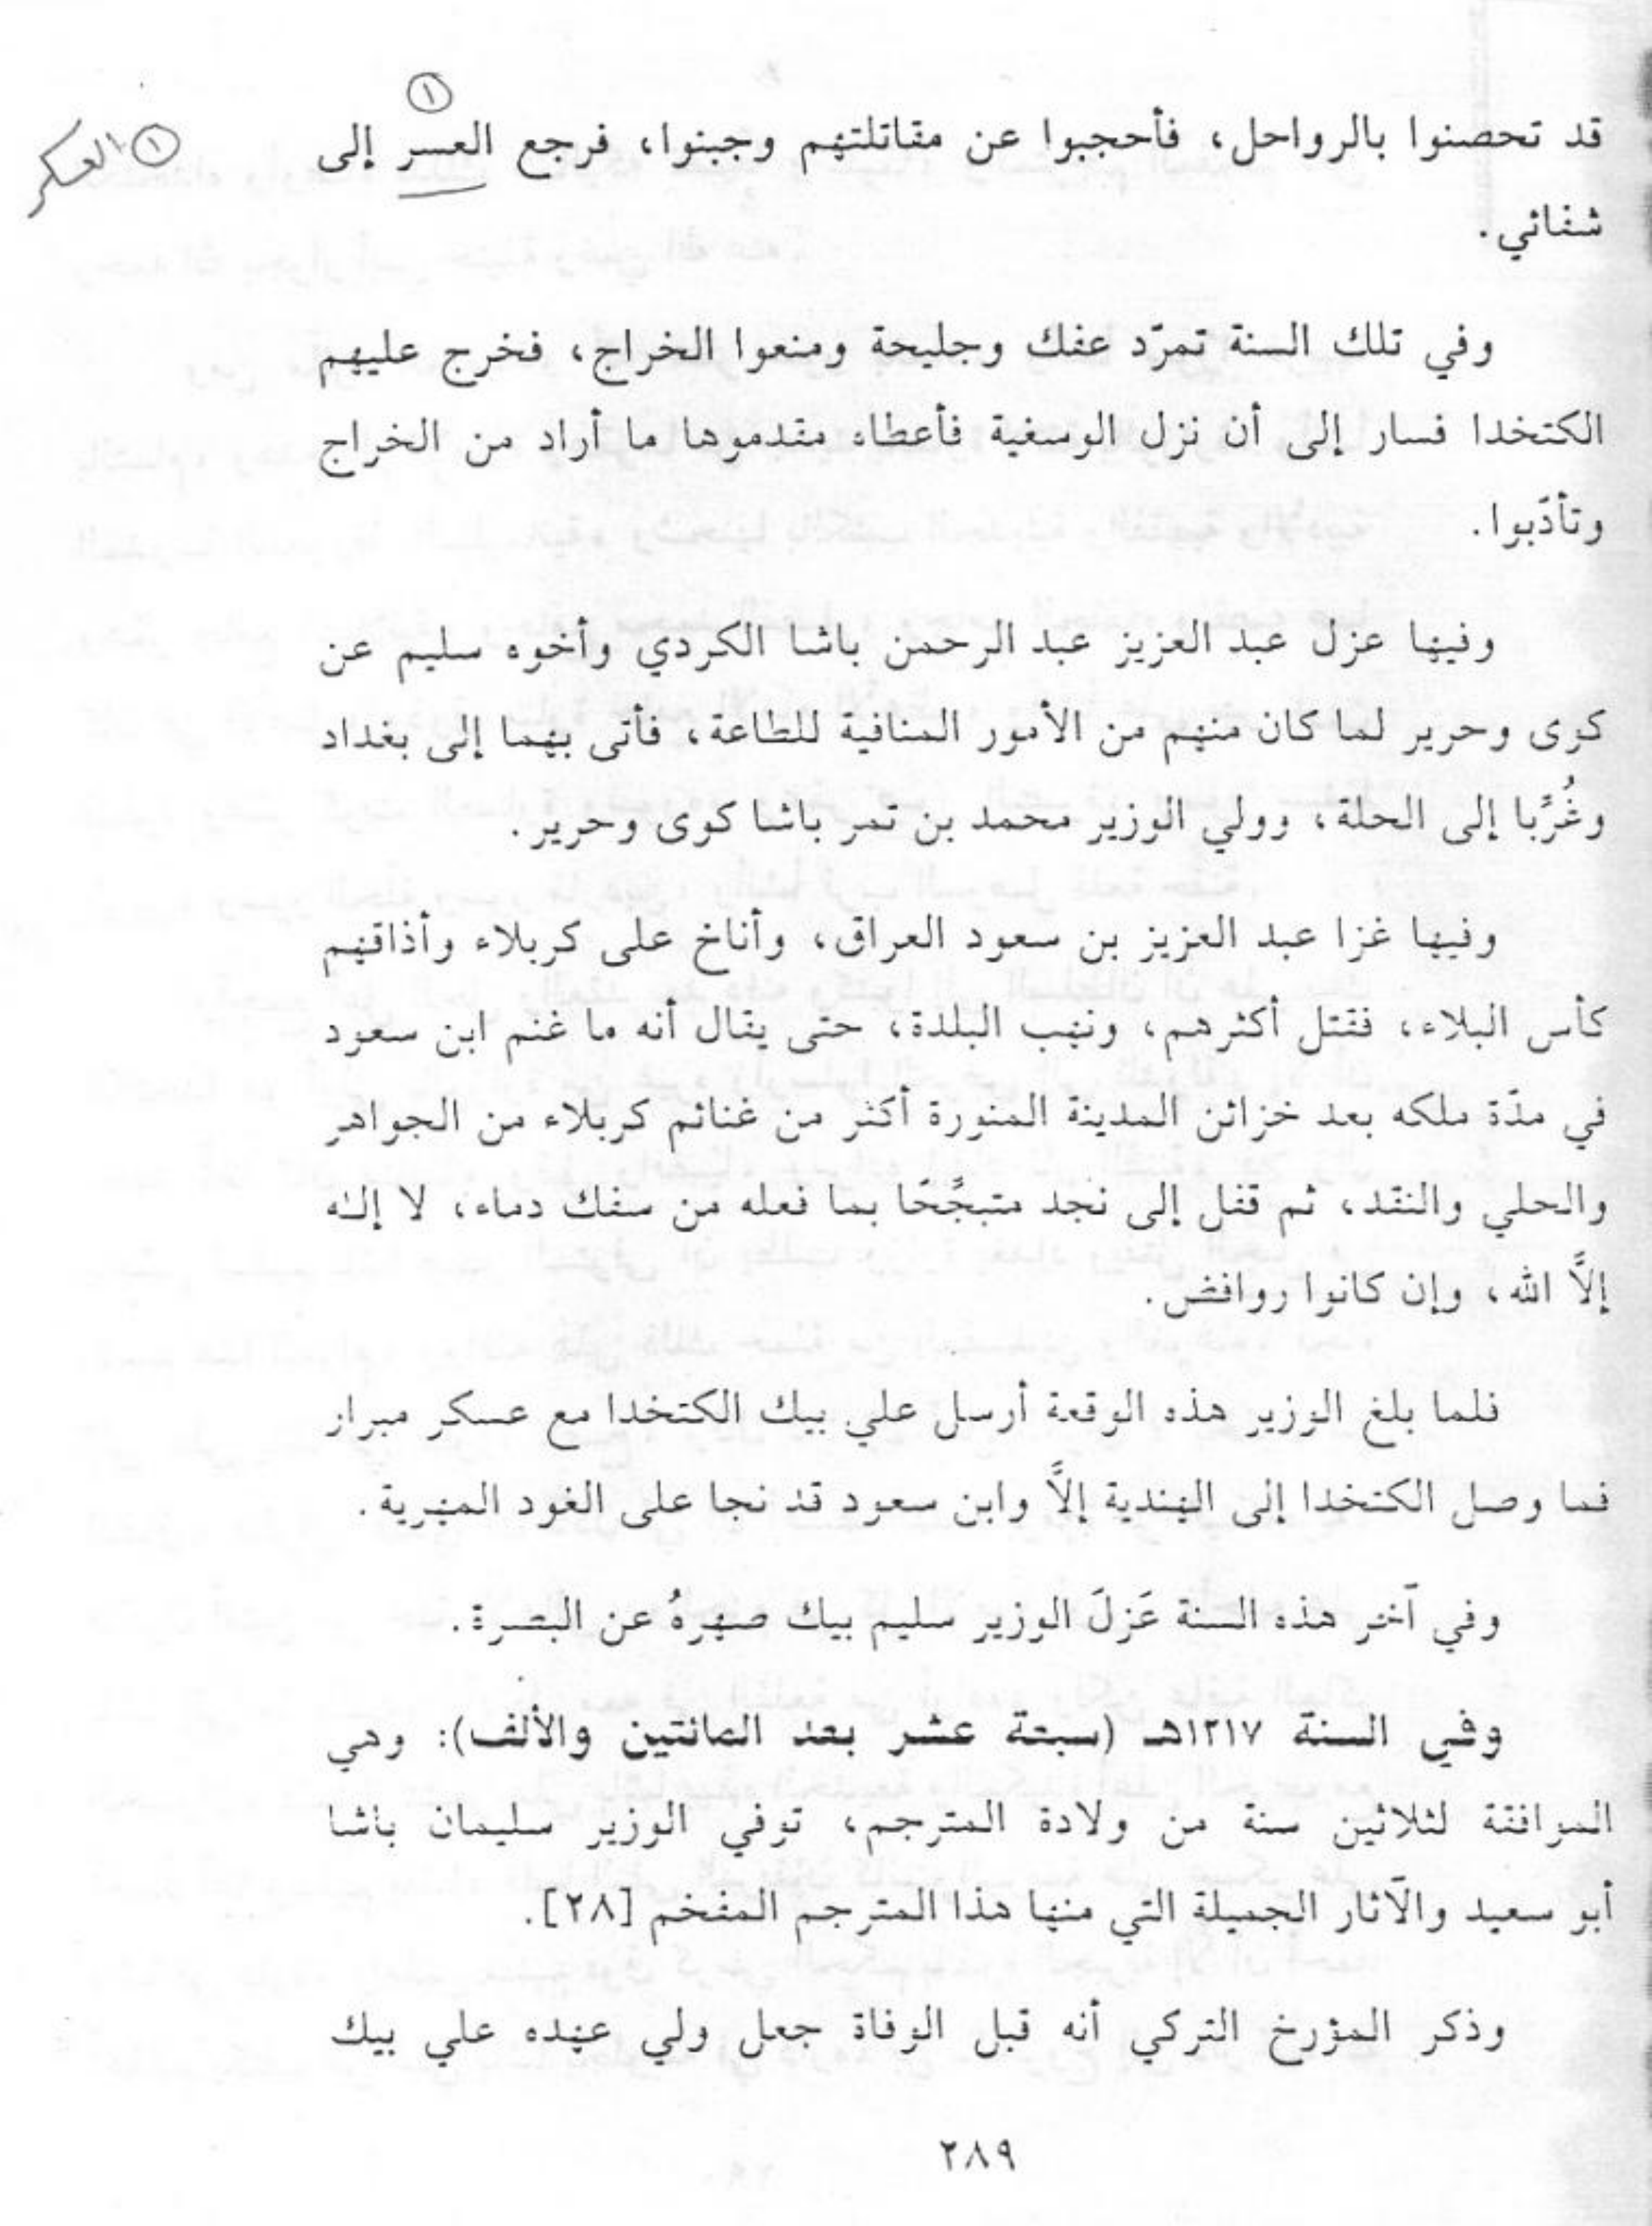 ①
قد تحصنوا بالرواحل، فأحجبوا عن مقاتلتهم وجبنوا، فرجع العسر إلى
① العسكر
شفائي.
وفي تلك السنة تمرّد عفك وجليحة ومنعوا الخراج، فخرج عليهم
الكتخدا فسار إلى أن نزل الوسغية فأعطاه مقدموها ما أراد من الخراج
وتأدّبوا.
وفيها عزل عبد العزيز عبد الرحمن باشا الكردي وأخوه سليم عن
كوى وحرير لما كان منهم من الأمور المنافية للطاعة، فأتى بهما إلى بغداد
وغُرِّبا إلى الحلة، وولي الوزير محمد بن تمر باشا كوى وحرير.
وفيها غزا عبد العزيز بن سعود العراق، وأناخ على كربلاء وأذاقهم
كأس البلاء، فقتل أكثرهم، ونهب البلدة، حتى يقال أنه ما غنم ابن سعود
في مدّة ملكه بعد خزائن المدينة المنورة أكثر من غنائم كربلاء من الجواهر
والحلي والنقد، ثم قفل إلى نجد متبجِّحًا بما فعله من سفك دماء، لا إلٰه
إلاَّ الله، وإن كانوا روافض.
فلما بلغ الوزير هذه الوقعة أرسل علي بيك الكتخدا مع عسكر مبرار
فما وصل الكتخدا إلى الهندية إلاَّ وابن سعود قد نجا على الغود المهرية.
وفي آخر هذه السنة عَزلَ الوزير سليم بيك صهرهُ عن البصرة.
وفي السنة ١٢١٧هـ (سبعة عشر بعد المائتين والألف): وهي
الموافقة لثلاثين سنة من ولادة المترجم، توفي الوزير سليمان باشا
أبو سعيد والآثار الجميلة التي منها هذا المترجم المفخم [٢٨].
وذكر المؤرخ التركي أنه قبل الوفاة جعل ولي عهده علي بيك
٢٨٩